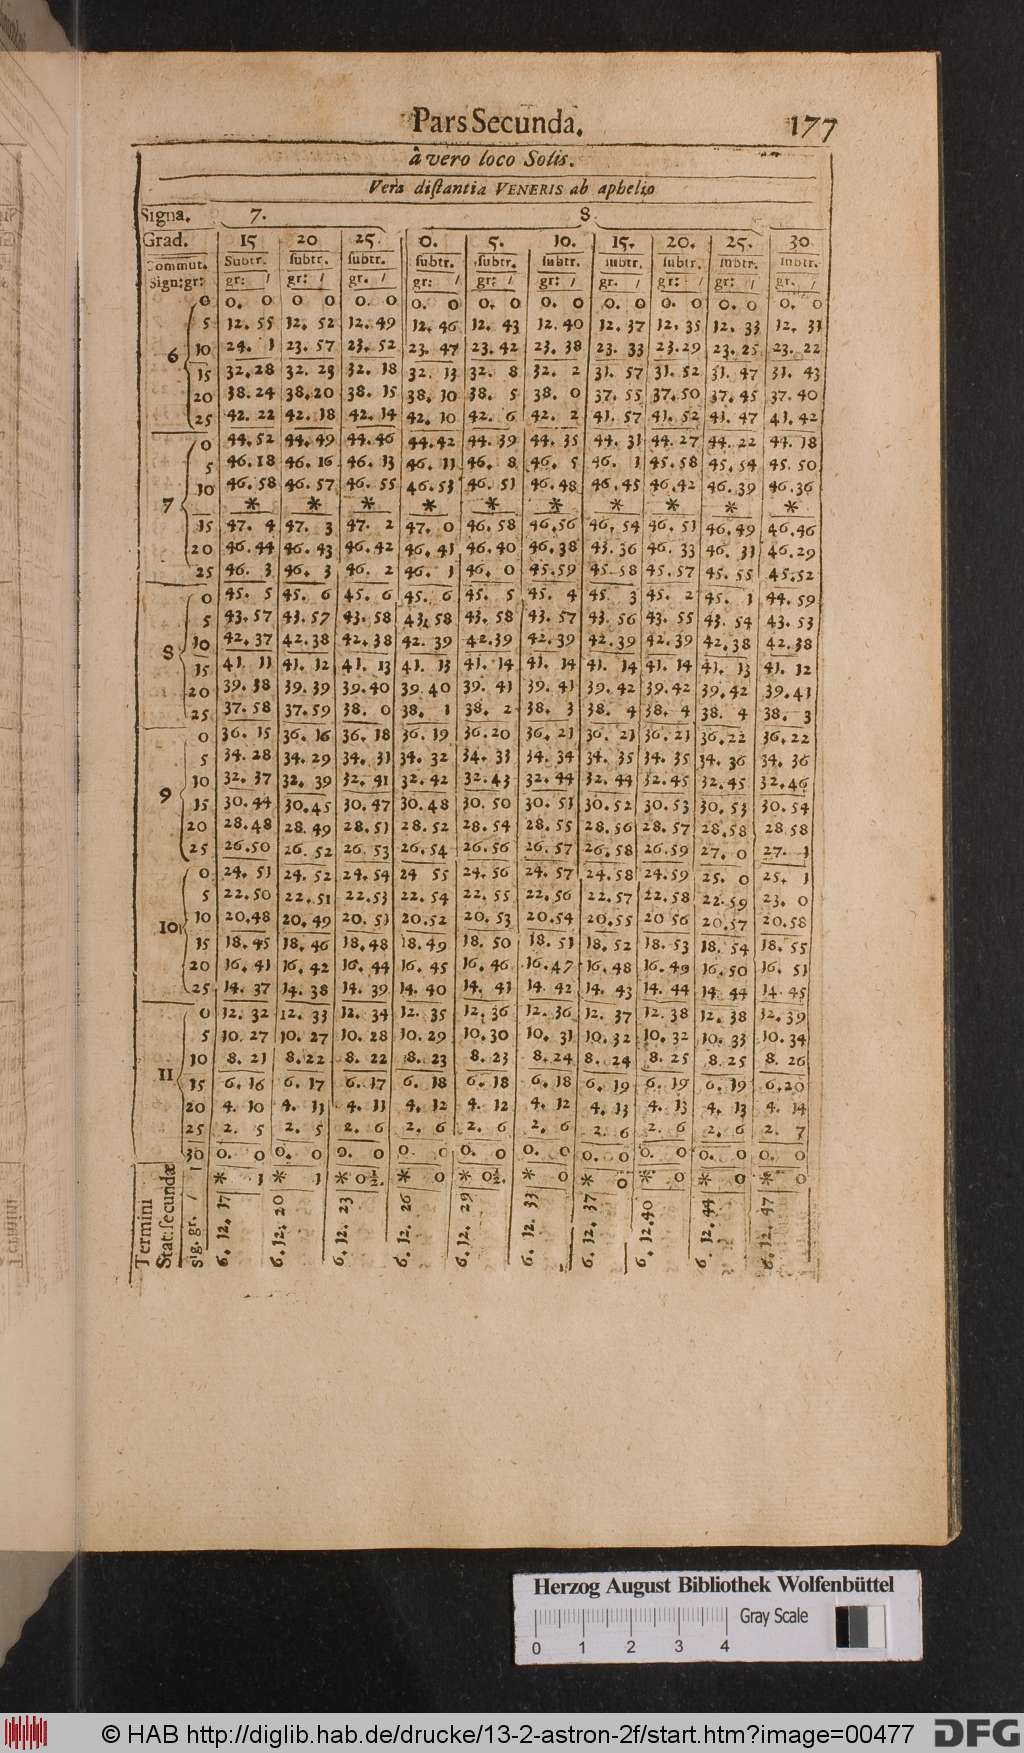 Pars Secunda. 177
à vero loco Solis.
Vera distantia VENERIS ab aphelio
Signa. 7. 8
Grad. 15 20 25. 0. 5. 10. 15. 20. 25. 30
Commut. Subtr. subtr. subtr. subtr. subtr. subtr. subtr. subtr. subtr. subtr.
Sign: gr: gr: / gr: / gr. / gr: / gr: / gr: / gr. / gr: / gr: / gr. /
0 0. 0 0 0 0. 0 0. 0 0. 0 0. 0 0. 0 0. 0 0. 0 0. 0
5 12. 55 12. 52 12. 49 12. 46 12. 43 12. 40 12. 37 12. 35 12. 33 12. 31
6 10 24. 1 23. 57 23. 52 23. 47 23. 42 23. 38 23. 33 23. 29 23. 25 23. 22
15 32. 28 32. 23 32. 18 32. 13 32. 8 32. 2 31. 57 31. 52 31. 47 31. 43
20 38. 24 38. 20 38. 15 38. 10 38. 5 38. 0 37. 55 37. 50 37. 45 37. 40
25 42. 22 42. 18 42. 14 42. 10 42. 6 42. 2 41. 57 41. 52 41. 47 41. 42
0 44. 52 44. 49 44. 46 44. 42 44. 39 44. 35 44. 31 44. 27 44. 22 44. 18
5 46. 18 46. 16 46. 13 46. 11 46. 8 46. 5 46. 1 45. 58 45. 54 45. 50
10 46. 58 46. 57 46. 55 46. 53 46. 51 46. 48 46. 45 46. 42 46. 39 46. 36
7 * * * * * * * * * *
15 47. 4 47. 3 47. 2 47. 0 46. 58 46. 56 46. 54 46. 51 46. 49 46. 46
20 46. 44 46. 43 46. 42 46. 41 46. 40 46. 38 43. 36 46. 33 46. 31 46. 29
25 46. 3 46. 3 46. 2 46. 1 46. 0 45. 59 45. 58 45. 57 45. 55 45. 52
0 45. 5 45. 6 45. 6 45. 6 45. 5 45. 4 45. 3 45. 2 45. 1 44. 59
5 43. 57 43. 57 43. 58 43. 58 43. 58 43. 57 43. 56 43. 55 43. 54 43. 53
8 10 42. 37 42. 38 42. 38 42. 39 42. 39 42. 39 42. 39 42. 39 42. 38 42. 38
15 41. 11 41. 12 41. 13 41. 13 41. 14 41. 14 41. 14 41. 14 41. 13 41. 12
20 39. 38 39. 39 39. 40 39. 40 39. 41 39. 41 39. 42 39. 42 39. 42 39. 41
25 37. 58 37. 59 38. 0 38. 1 38. 2 38. 3 38. 4 38. 4 38. 4 38. 3
0 36. 15 36. 16 36. 18 36. 19 36. 20 36. 21 36. 21 36. 21 36. 22 36. 22
5 34. 28 34. 29 34. 31 34. 32 34. 33 34. 34 34. 35 34. 35 34. 36 34. 36
10 32. 37 32. 39 32. 41 32. 42 32. 43 32. 44 32. 44 32. 45 32. 45 32. 46
9 15 30. 44 30. 45 30. 47 30. 48 30. 50 30. 51 30. 52 30. 53 30. 53 30. 54
20 28. 48 28. 49 28. 51 28. 52 28. 54 28. 55 28. 56 28. 57 28. 58 28 58
25 26. 50 26. 52 26. 53 26. 54 26. 56 26. 57 26. 58 26. 59 27. 0 27. 1
0 24. 51 24. 52 24. 54 24 55 24. 56 24. 57 24. 58 24. 59 25. 0 25. 1
5 22. 50 22. 51 22. 53 22. 54 22. 55 22. 56 22. 57 22. 58 22. 59 23. 0
10 10 20. 48 20. 49 20. 51 20. 52 20. 53 20. 54 20. 55 20 56 20. 57 20. 58
15 18. 45 18. 46 18. 48 18. 49 18. 50 18. 51 18. 52 18. 53 18. 54 18. 55
20 16. 41 16. 42 16. 44 16. 45 16. 46 16. 47 16. 48 16. 49 16. 50 16. 51
25 14. 37 14. 38 14. 39 14. 40 14. 41 14. 42 14. 43 14. 44 14 44 14. 45
0 12. 32 12. 33 12. 34 12. 35 12. 36 12. 36 12. 37 12. 38 12. 38 12. 39
5 10. 27 10. 27 10. 28 10. 29 10. 30 10. 31 10. 32 10. 32 10. 33 10. 34
10 8. 21 8. 22 8. 22 8. 23 8. 23 8. 24 8. 24 8. 25 8. 25 8. 26
11 15 6. 16 6. 17 6. 17 6. 18 6. 18 6. 18 6. 19 6. 19 6. 19 6. 20
20 4. 10 4. 11 4. 11 4. 12 4. 12 4. 12 4. 13 4. 13 4. 13 4. 14
25 2. 5 2. 5 2. 6 2. 6 2. 6 2. 6 2. 6 2. 6 2. 6 2. 7
30 0. 0 0. 0 0. 0 0. 0 0. 0 0. 0 0. 0 0. 0 0. 0 0. 0
* 1 * 1 * 0½. * 0 * 0½. * 0 * 0 * 0 * 0 * 0
Termini
Stat: secundæ
sig. gr. /
6. 12. 17 6. 12. 20 6. 12. 23 6. 12. 26 6. 12. 29 6. 12. 33 6. 12. 37 6. 12. 40 6. 12. 44 6. 12. 47
Herzog August Bibliothek Wolfenbüttel
Gray Scale
0 1 2 3 4
© HAB http://diglib.hab.de/drucke/13-2-astron-2f/start.htm?image=00477 DFG